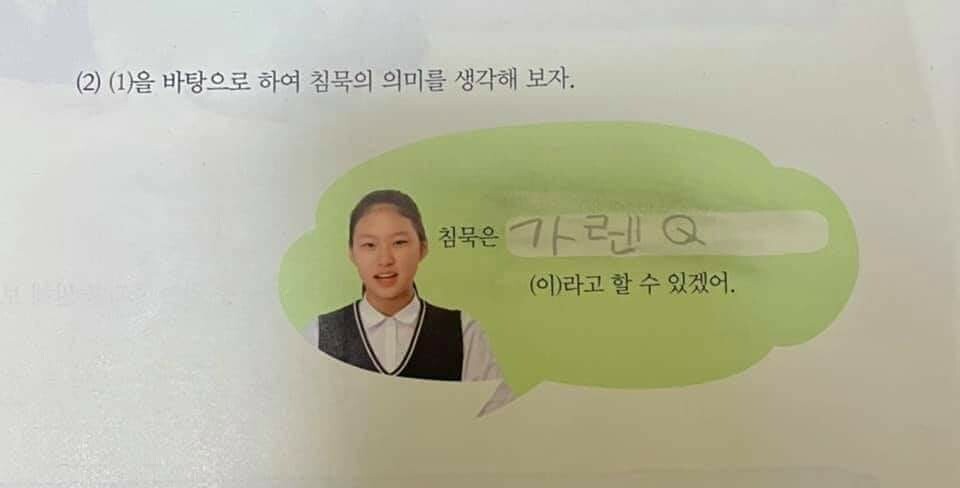 (2) (1)을 바탕으로 하여 침묵의 의미를 생각해 보자.
침묵은 가렌 Q
(이)라고 할 수 있겠어.